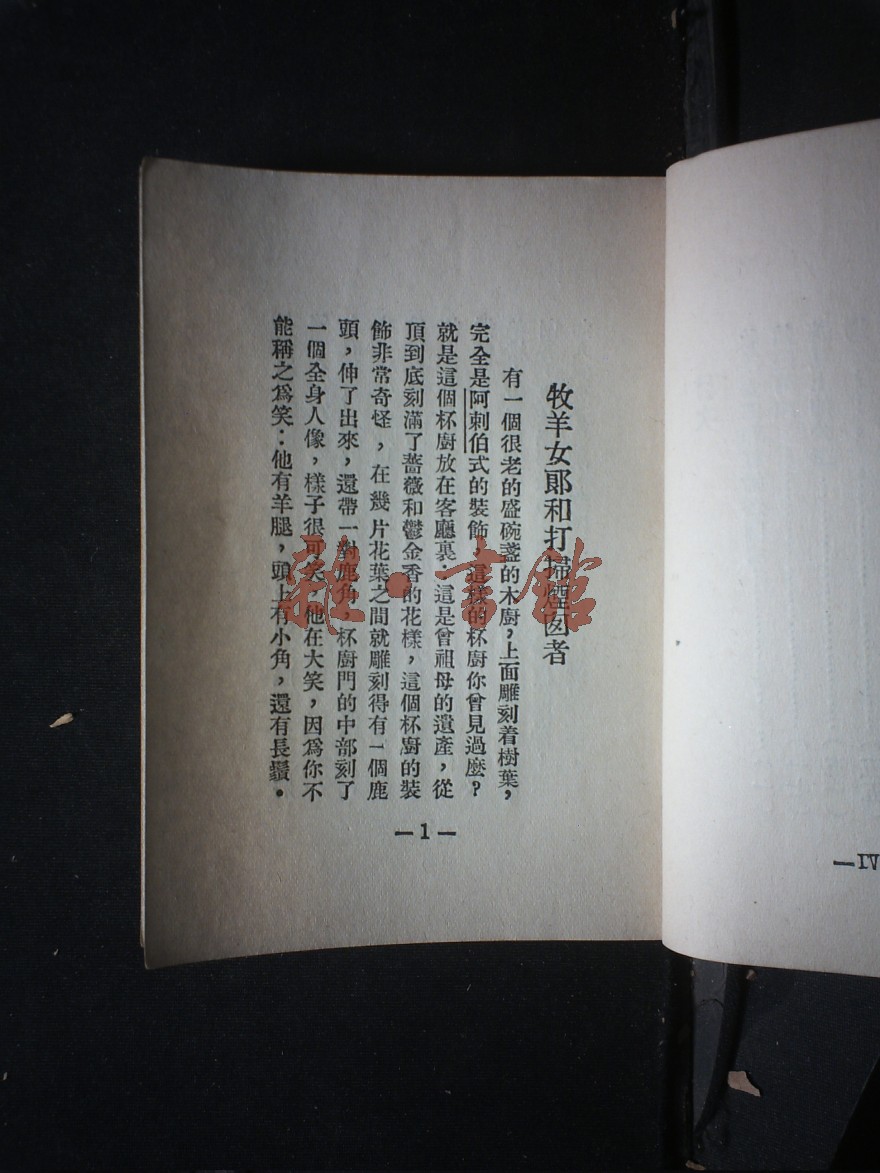 牧羊女郞和打掃煙囪者
有一個很老的盛碗盞的木廚，上面雕刻着樹葉，
完全是阿剌伯式的裝飾，這樣的杯廚你曾見過麼？
就是這個杯廚放在客廳裏：這是曾祖母的遺產，從
頂到底刻滿了薔薇和鬱金香的花樣，這個杯廚的裝
飾非常奇怪，在幾片花葉之間就雕刻得有一個鹿
頭，伸了出來，還帶一對鹿角，杯廚門的中部刻了
一個全身人像，樣子很可笑，他在大笑，因爲你不
能稱之爲笑：他有羊腿，頭上有小角，還有長鬚。
—1—
—IV
雜·書館